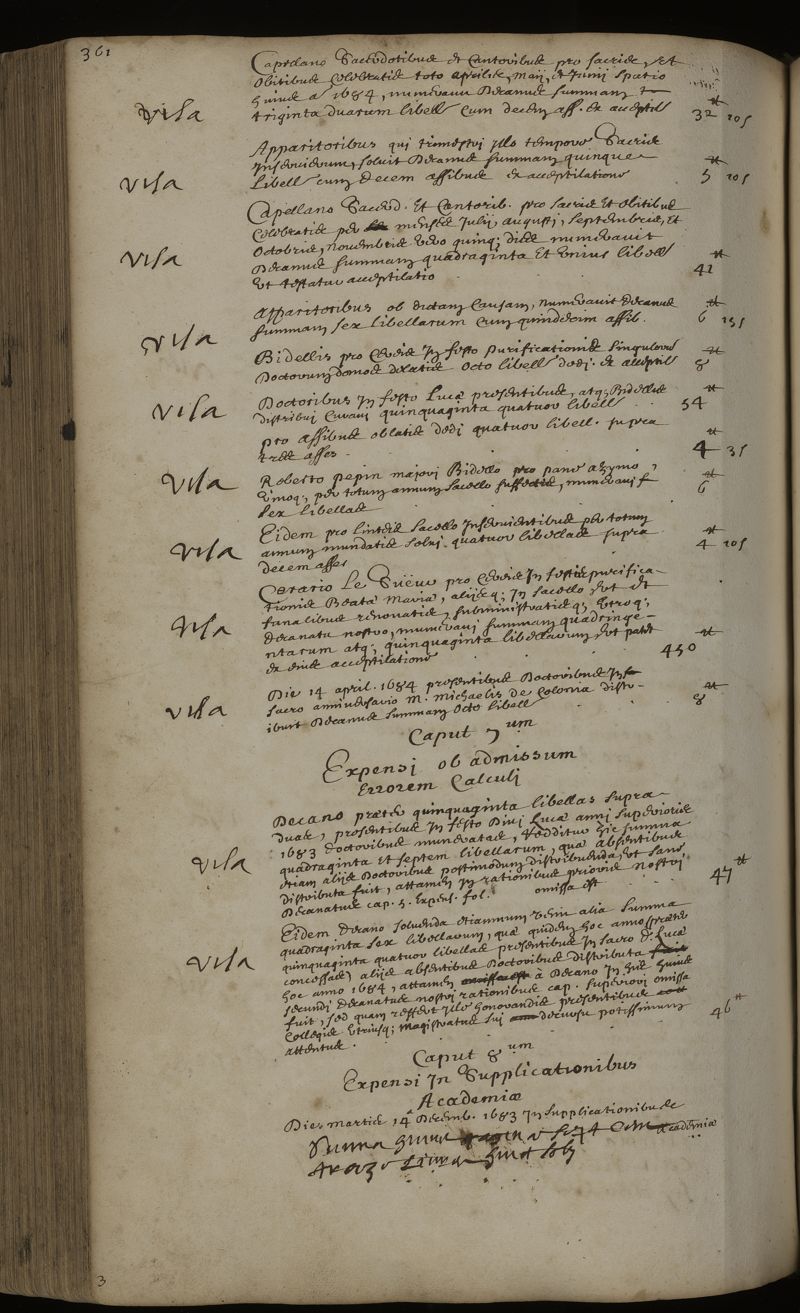 361
Capellano Sacerdotibus et Cantoribus pro sacris, et
obitibus celebratis toto Aprilis, Maij, et Junij spatio
huius a. 1684, numeravit Decanus summam
visa triginta duarum libell. cum decem ass. ex acceptil. 32 tt 10 s
Apparitoribus qui trimestri illo tempore Sacris
inservierunt, solvit Decanus summam quinque
visa libell. cum decem assibus ex acceptilatione 5 tt 10 s
Capellano Sacerd. et Cantorib. pro sacris et obitibus
celebratis per menses Julij, Augusti, Septembris, et
Octobris, Novembris vero quinq; dies numeravit
visa Decanus summam quadraginta et unius libell.
ut testatur acceptilatio 41 tt
Apparitoribus ob dictam causam, numeravit Decanus
visa summam sex libellarum cum quindecim assib. 6 tt 15 s
Bidellis pro cereis in festo Purificationis singulorum
Doctorum domos delatis octo libell. dedi. ex acceptil. 8 tt
Doctoribus in festo Lucæ præsentibus, atq; Bidellis
visa distribui curavi quinquaginta quatuor libell. 54 tt
pro assibus oblatis dedi quatuor libell. supra
tres asses. 4 tt 3 s
Roberto Pepin majori Bidello pro pane azymo,
visa vinoq; per totum annum sacello suffectis, numeravi
sex libellas 6 tt
Eidem pro linteis sacello inservientibus per totum
visa annum mundatis solvi quatuor libellas supra
decem asses 4 tt 10 s
Cerario Le Süeur pro cereis in festis purifica-
tionis Beatæ Mariæ, alijsq; in sacello, ut et
fanalibus renovatis, subministratisq; utroq;
visa decanatu nostro, numeravi summam quadringe-
ntarum atq; quinquaginta libellarum, ut patet
ex eius acceptilatione 450 tt
Die 14 april. 1684 præsentibus Doctoribus in
sacro anniversario M. Michaelis de Colonia distr-
visa ibuit Decanus summam octo libell. 8 tt
Caput 7um
Expensi ob admissum
Errorem Calculi
Decano præter quinquaginta libellas supra
duas, præsentibus in festo Divi Lucæ anni superioris
1683 Doctoribus numeratas, redditur hic summa
quadraginta et septem libellarum, quæ absentibus
visa etiam alijs Doctoribus postmodum distribuenda, ut sane
distributa fuit, attamen in rationibus prioris nostri
Decanatus cap. 5. Expens. fol. omissa est 47 tt
Eidem Decano solvenda etiamnum venit alia summa
quadraginta sex libellarum, quæ quidem hoc anno præter
quinquaginta quatuor libellas præsentibus in sacro D. Lucæ
visa concessas, alijs absentibus Doctoribus distributa
hoc anno 1684, attamen à Decano in his huius
secundi decanatus nostri rationibus cap. superiori omissa
fuit, sed quam
Collegis utriusq; Magistratus sui decursu potissimum
attentus. 46 tt
Caput 8um
Expensi in Supplicationibus
Academiæ
Dies Martis 14a Decemb. 1683 in supplicationibus
Academiæ
3